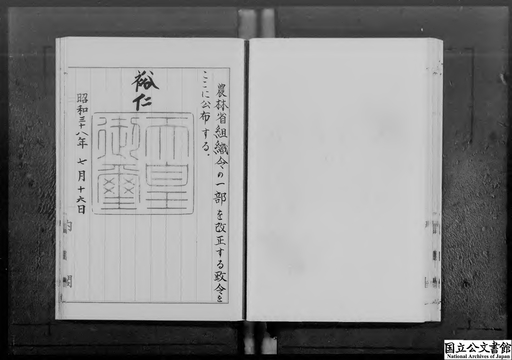 農林省組織令の一部を改正する政令を
ここに公布する。
裕仁
天皇御璽
昭和三十八年七月十六日
国立公文書館
National Archives of Japan